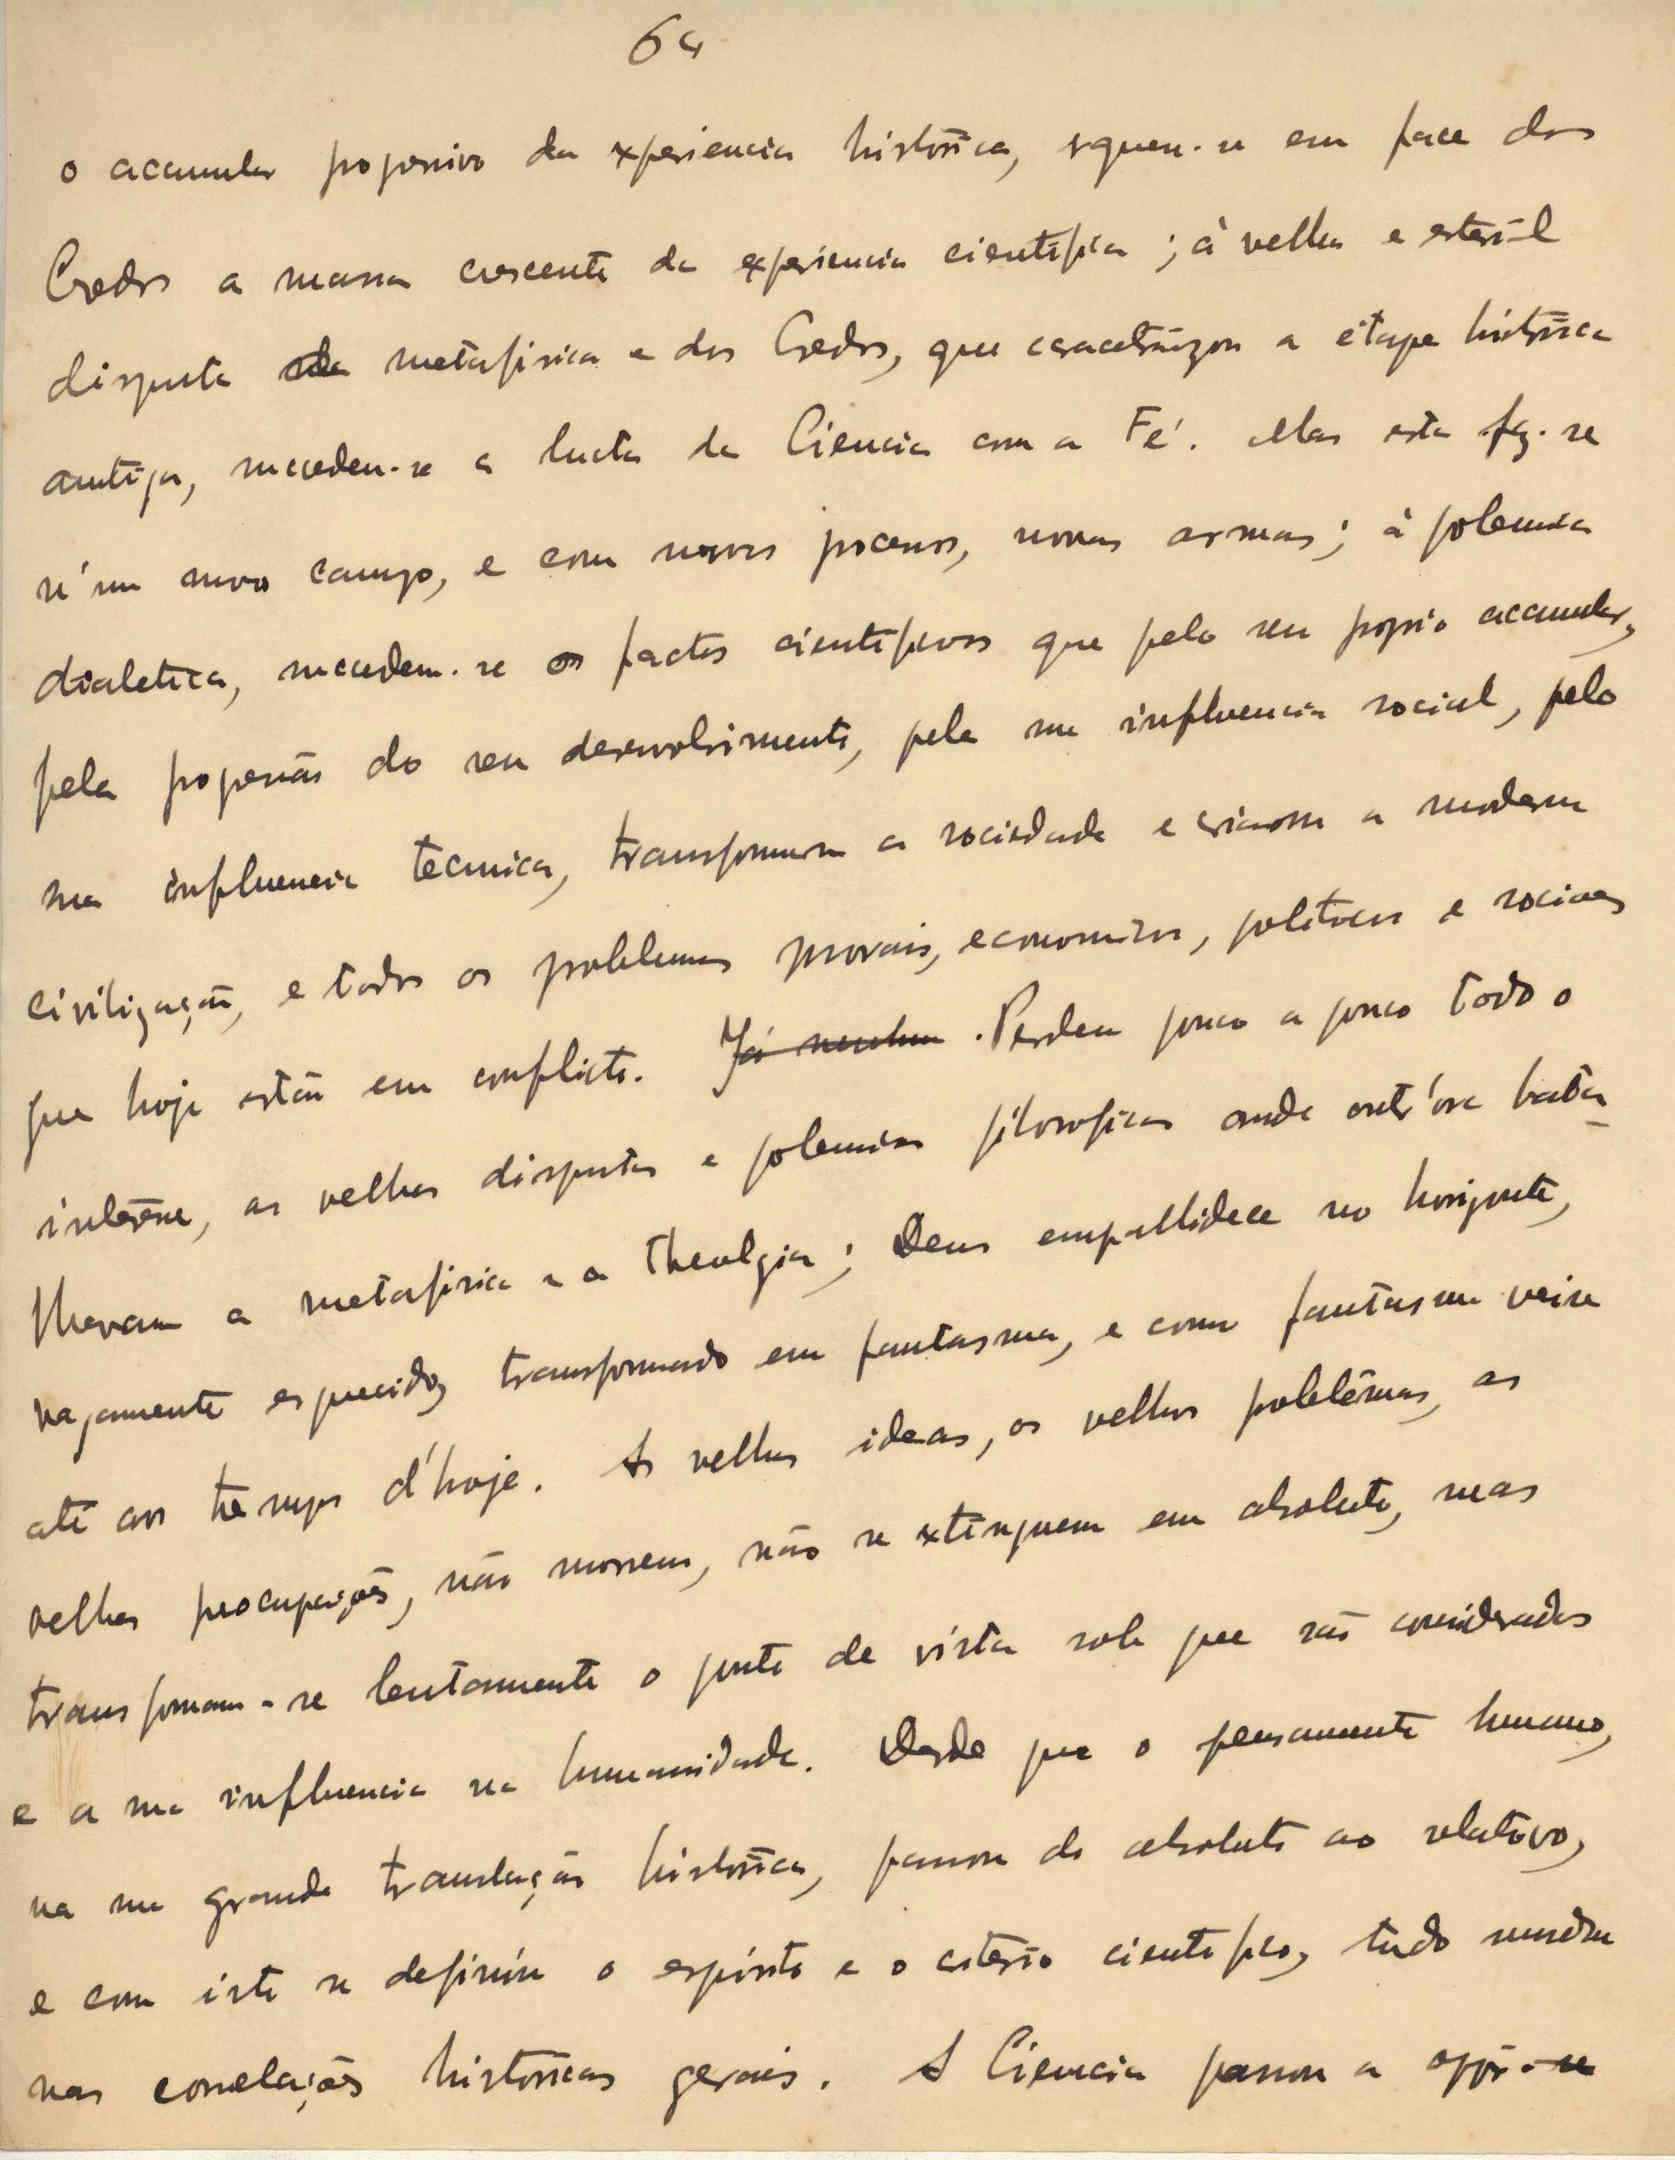 64
o accumular progressivo da experiencia historica, ergueu-se em face dos
Credos a massa crescente da experiencia cientifica; á velha e esteril
disputa da metafisica e dos Credos, que caracterizou a etape historica
antiga, succedeu-se a lucta da Ciencia com a Fé. Mas esta fez-se
n'um novo campo, e com novos processos, novas armas; á polemica
dialetica, succedem-se os factos cientificos que pelo seu proprio accumular,
pela progressão do seu desenvolvimento, pela sua influencia social, pela
sua influencia tecnica, transformaram a sociedade e criaram a moderna
civilização, e todos os problemas morais, economicos, politicos e sociaes
que hoje estão em conflicto. Já nenhum . Perdeu pouco a pouco todo o
interesse, as velhas disputas e polemicas filosoficas onde outr'ora bata-
lhavam a metafisica e a theologia; Deus empallidece no horizonte,
vagamente esquecido, transformado em fantasma, e como fantasma veiu
até aos tempos d'hoje. As velhas ideas, os velhos problêmas, as
velhas preocupações, não morrem, não se extinguem em absoluto, mas
transformam-se lentamente o ponto de vista sob que são considerados
e a sua influencia na humanidade. Desde que o pensamento humano,
na sua grande translação historica, passou do absoluto ao relativo,
e com isto se definiu o espirito e o criterio cientifico, tudo mudou
nas correlações historicas gerais. A Ciencia passou a oppôr-se